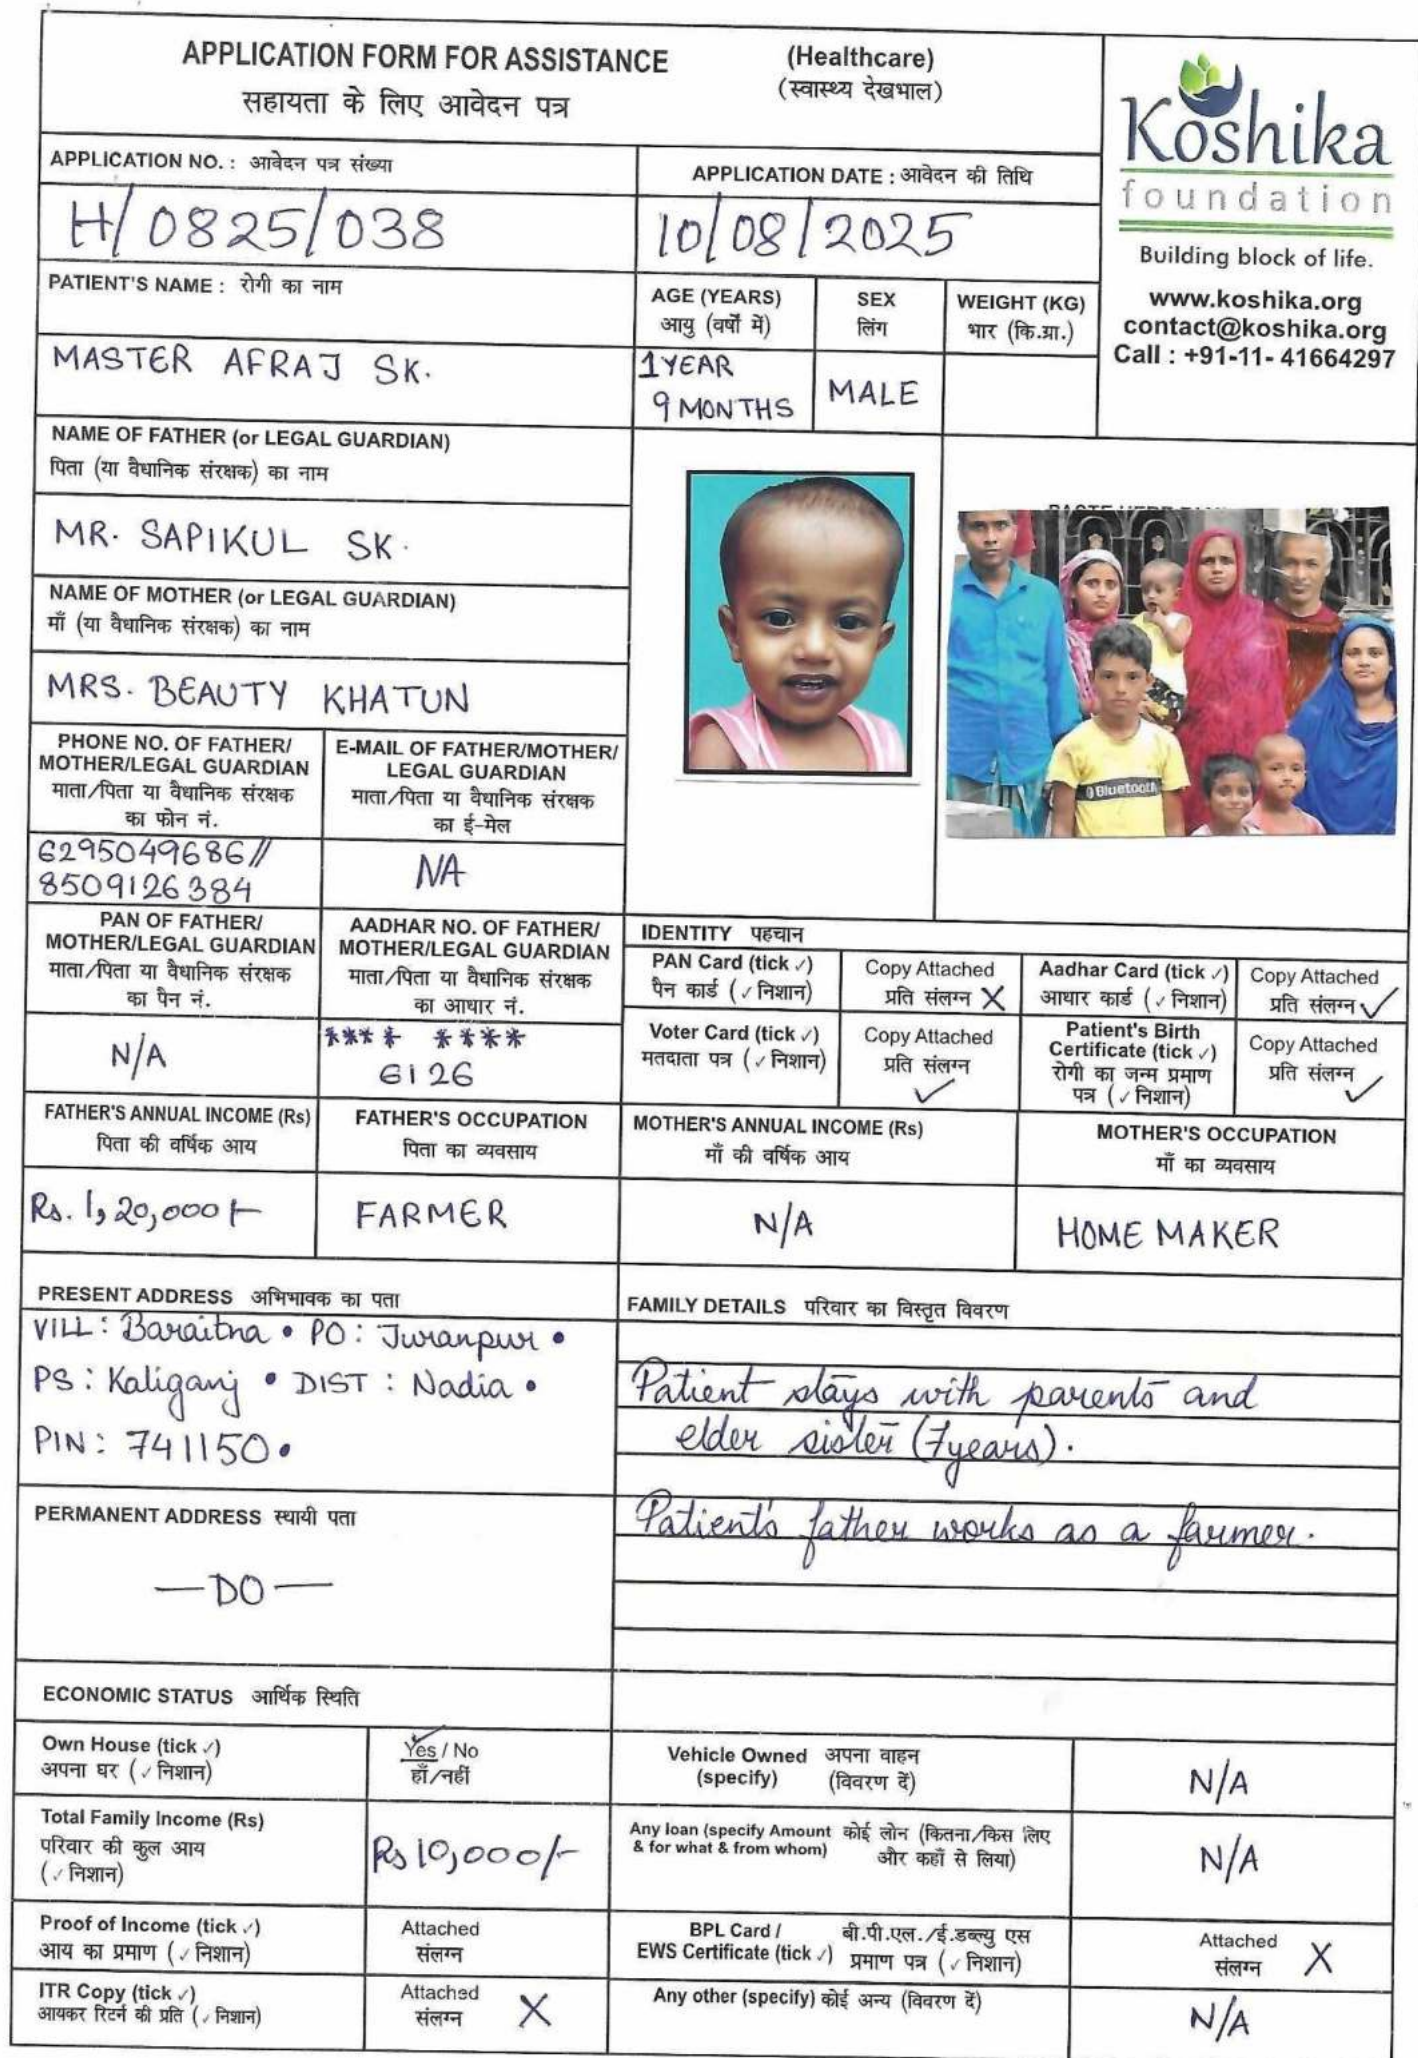 APPLICATION FORM FOR ASSISTANCE (Healthcare)
सहायता के लिए आवेदन पत्र (स्वास्थ्य देखभाल)
Koshika
foundation
Building block of life.
www.koshika.org
contact@koshika.org
Call : +91-11- 41664297
APPLICATION NO. : आवेदन पत्र संख्या
H/0825/038
APPLICATION DATE : आवेदन की तिथि
10/08/2025
PATIENT'S NAME : रोगी का नाम
MASTER AFRAJ SK.
AGE (YEARS)
आयु (वर्षों में)
1 YEAR
9 MONTHS
SEX
लिंग
MALE
WEIGHT (KG)
भार (कि.ग्रा.)
NAME OF FATHER (or LEGAL GUARDIAN)
पिता (या वैधानिक संरक्षक) का नाम
MR. SAPIKUL SK.
NAME OF MOTHER (or LEGAL GUARDIAN)
माँ (या वैधानिक संरक्षक) का नाम
MRS. BEAUTY KHATUN
Bluetooth
PHONE NO. OF FATHER/
MOTHER/LEGAL GUARDIAN
माता/पिता या वैधानिक संरक्षक
का फोन नं.
6295049686//
8509126384
E-MAIL OF FATHER/MOTHER/
LEGAL GUARDIAN
माता/पिता या वैधानिक संरक्षक
का ई-मेल
NA
PAN OF FATHER/
MOTHER/LEGAL GUARDIAN
माता/पिता या वैधानिक संरक्षक
का पैन नं.
N/A
AADHAR NO. OF FATHER/
MOTHER/LEGAL GUARDIAN
माता/पिता या वैधानिक संरक्षक
का आधार नं.
**** ****
6126
IDENTITY पहचान
PAN Card (tick ✓)
पैन कार्ड (✓ निशान)
Copy Attached
प्रति संलग्न X
Aadhar Card (tick ✓)
आधार कार्ड (✓ निशान)
Copy Attached
प्रति संलग्न ✓
Voter Card (tick ✓)
मतदाता पत्र (✓ निशान)
Copy Attached
प्रति संलग्न
✓
Patient's Birth
Certificate (tick ✓)
रोगी का जन्म प्रमाण
पत्र (✓ निशान)
Copy Attached
प्रति संलग्न
✓
FATHER'S ANNUAL INCOME (Rs)
पिता की वर्षिक आय
Rs. 1,20,000/-
FATHER'S OCCUPATION
पिता का व्यवसाय
FARMER
MOTHER'S ANNUAL INCOME (Rs)
माँ की वर्षिक आय
N/A
MOTHER'S OCCUPATION
माँ का व्यवसाय
HOME MAKER
PRESENT ADDRESS अभिभावक का पता
VILL: Baraitna • PO: Juranpur •
PS: Kaliganj • DIST: Nadia •
PIN: 741150•
PERMANENT ADDRESS स्थायी पता
— DO —
FAMILY DETAILS परिवार का विस्तृत विवरण
Patient stays with parents and
elder sister (7years).
Patient's father works as a farmer.
ECONOMIC STATUS आर्थिक स्थिति
Own House (tick ✓)
अपना घर (✓ निशान)
✓
Yes / No
हाँ/नहीं
Vehicle Owned अपना वाहन
(specify) (विवरण दें)
N/A
Total Family Income (Rs)
परिवार की कुल आय
(✓ निशान)
Rs 10,000/-
Any loan (specify Amount कोई लोन (कितना/किस लिए
& for what & from whom) और कहाँ से लिया)
N/A
Proof of Income (tick ✓)
आय का प्रमाण (✓ निशान)
Attached
संलग्न
BPL Card / बी.पी.एल./ई.डब्ल्यु एस
EWS Certificate (tick ✓) प्रमाण पत्र (✓ निशान)
Attached
संलग्न X
ITR Copy (tick ✓)
आयकर रिटर्न की प्रति (✓ निशान)
Attached
संलग्न X
Any other (specify) कोई अन्य (विवरण दें)
N/A